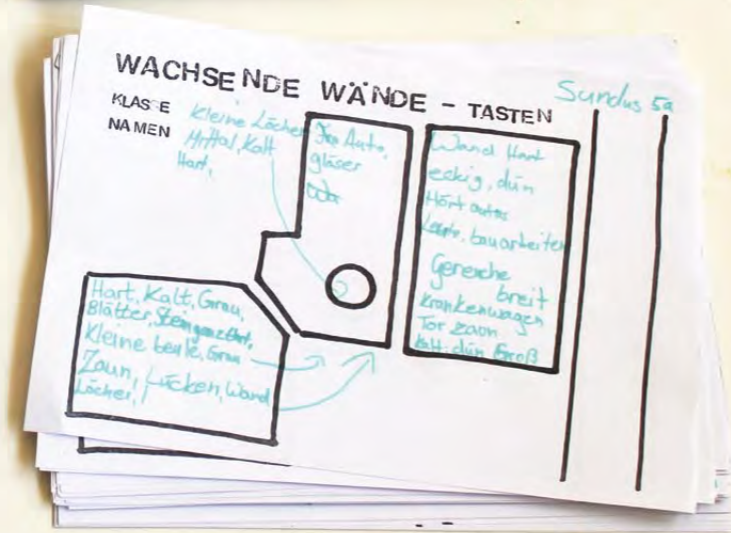 WACHSENDE WÄNDE - TASTEN
Sundus 5a
KLASSE
NAMEN
Kleine Löcher
Mittal, Kalt
Hart,
Auto,
gläser
Wand Hart
eckig, dün
Hört autos
Leute, bauarbeiter
Gereiche
breit
Krankenwagen
Tor zaon
Kalt dün Groß
Hart, Kalt, Grau,
Blätter, Stein
Kleine beule, Grau
Zaun, Lücken, Wand
Löcher,